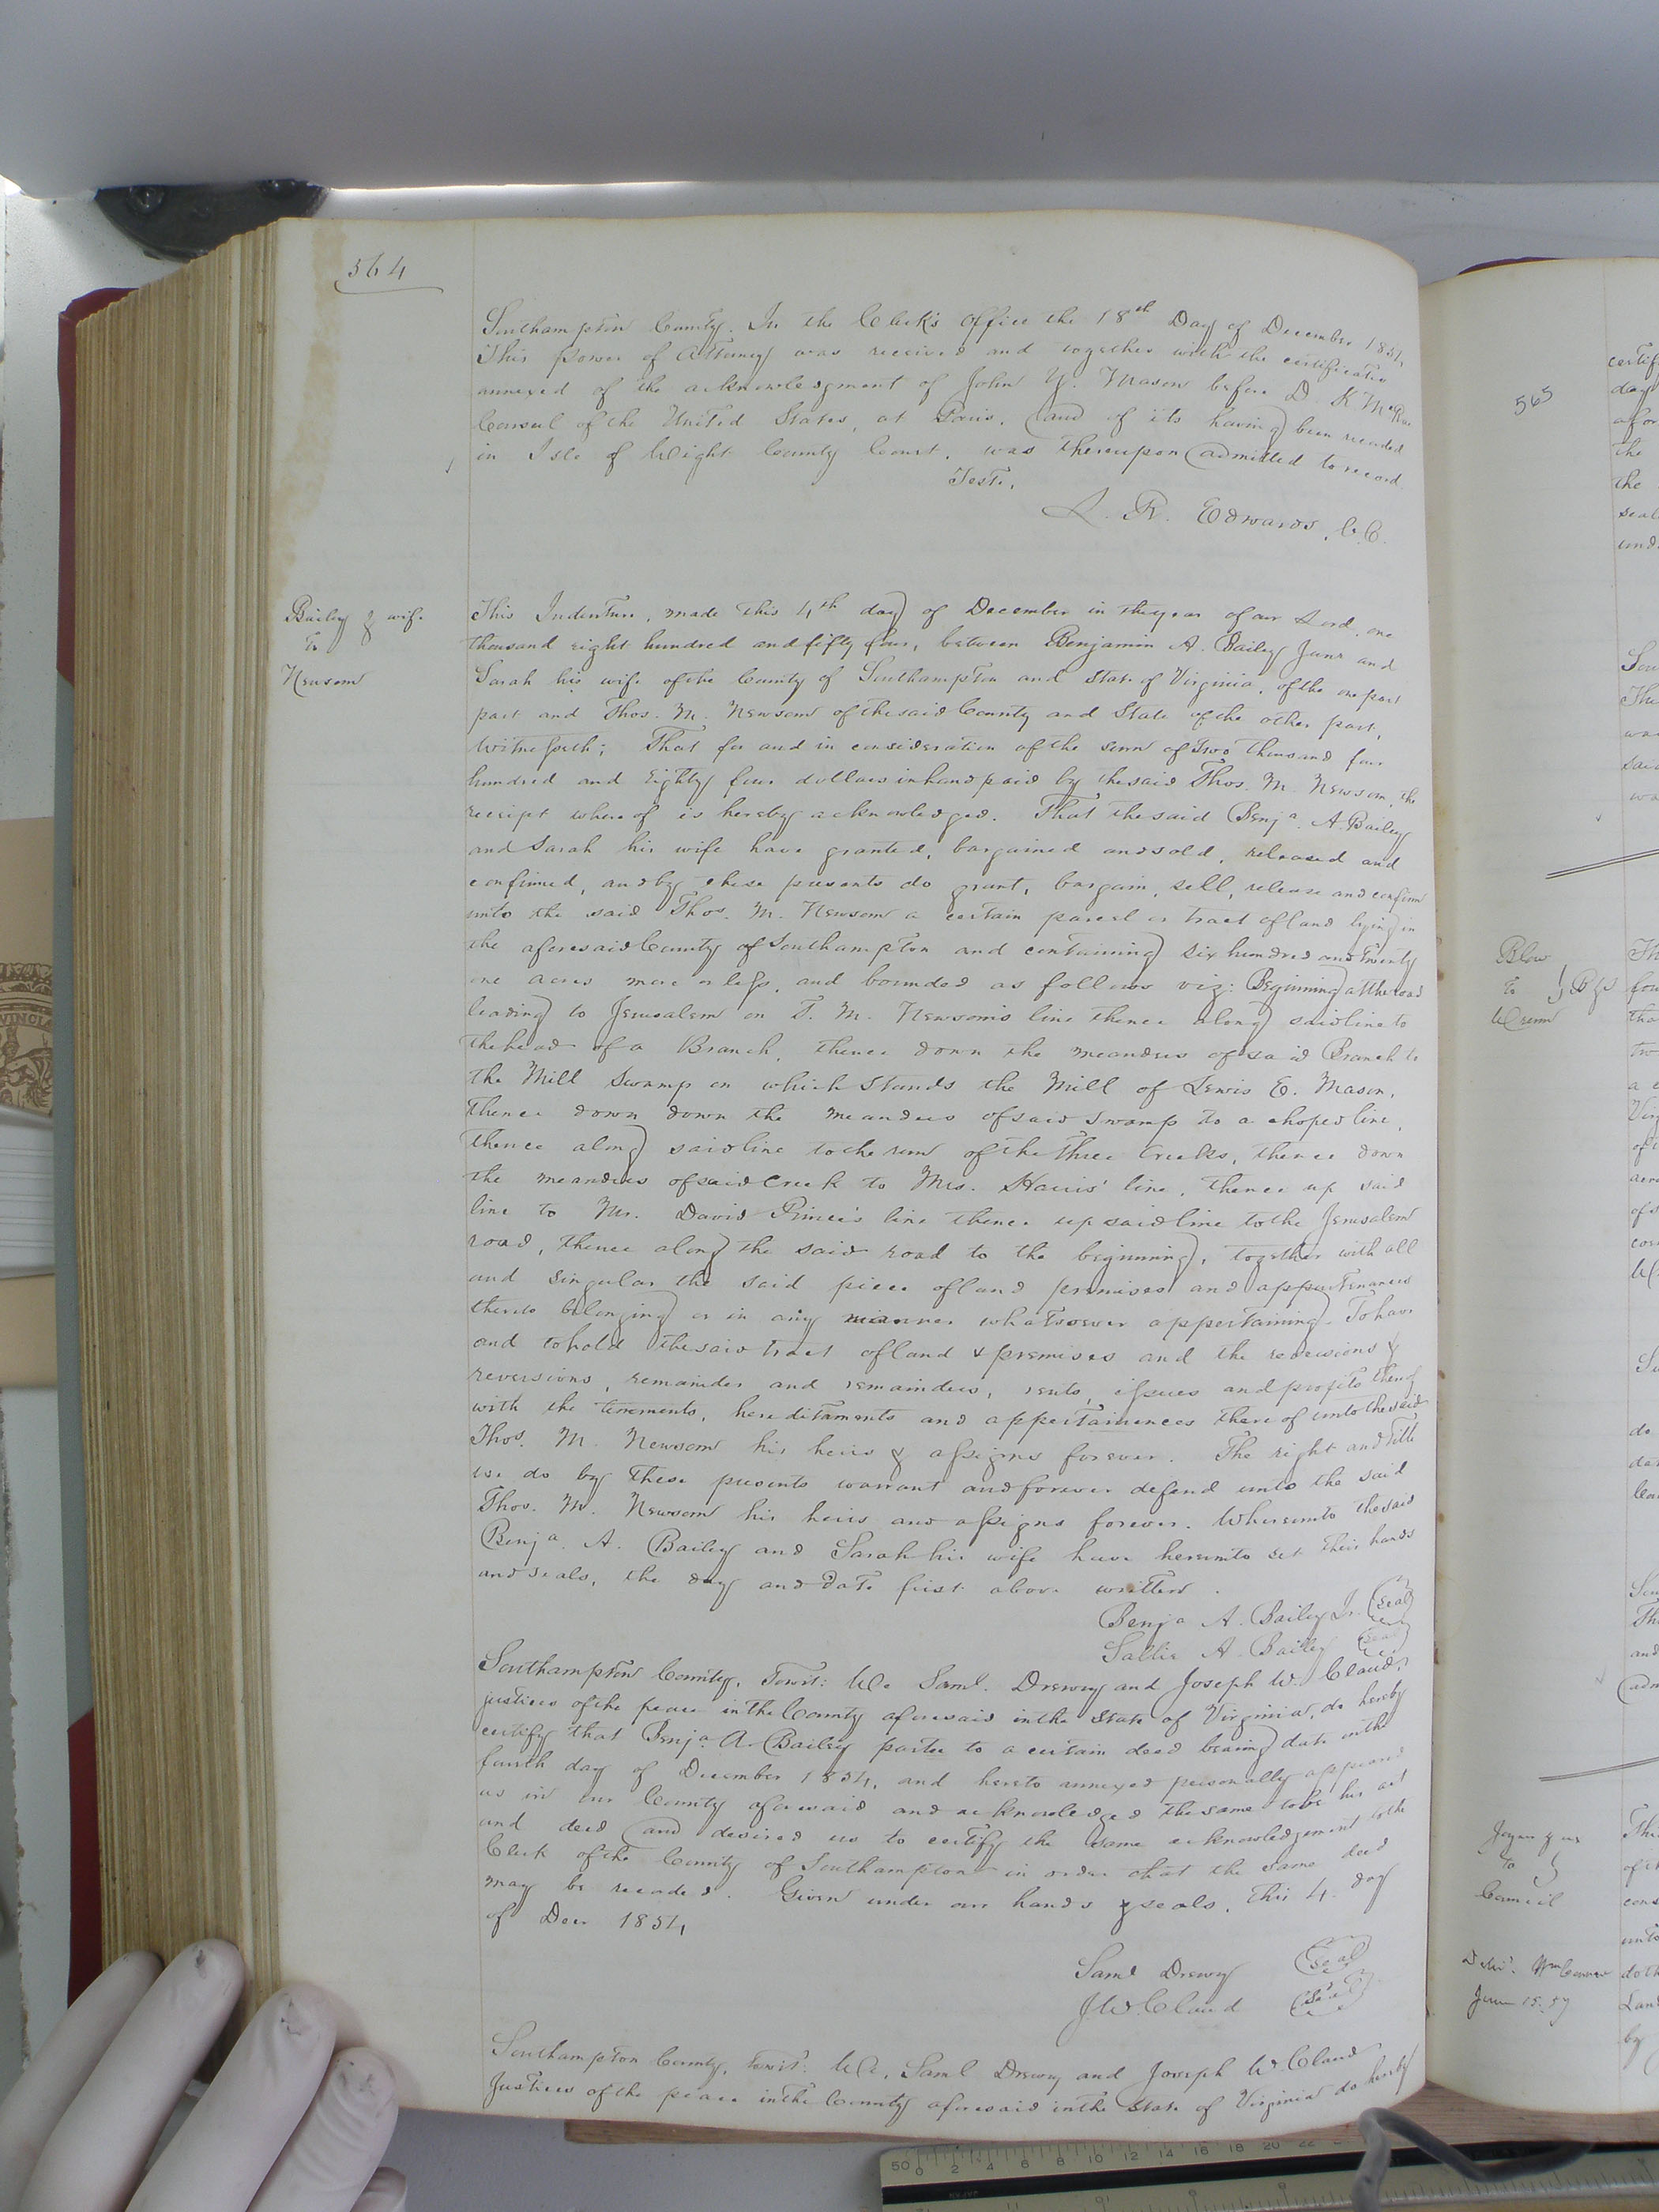 564
Southampton County. In the Clerk's Office the 18th Day of December 1854
This power of Attorney was received and together with the certificate
annexed of the acknowledgment of John Y. Mason before D. K McRae
Consul of the United States, at Paris, and of its having been recorded
in Isle of Wight County Court, was thereupon admitted to record.
Teste,
L. R. Edwards, C.C.
Bailey & wife
To
Newsom
This Indenture, made this 4th day of December in the year of our Lord, one
thousand eight hundred and fifty four, between Benjamin A. Bailey Junr and
Sarah his wife of the County of Southampton and State of Virginia, of the one part
part and Thos. M. Newsom of the said County and State of the other part,
Witnesseth; That for and in consideration of the sum of Two Thousand four
hundred and Eighty four dollars in hand paid by the said Thos. M. Newsom, the
receipt whereof is hereby acknowledged. That the said Benja. A. Bailey
and Sarah his wife have granted, bargained and sold, released and
confirmed, and by these presents do grant, bargain, sell, release and confirm
unto the said Thos. M. Newsom a certain parcel or tract of land lying in
the aforesaid County of Southampton and containing six hundred and twenty
one acres more or less, and bounded as follows viz: Beginning at the road
leading to Jerusalem on T. M. Newsom's line thence along said line to
the head of a Branch, thence down the meanders of said Branch to
the Mill Swamp on which stands the Mill of Lewis E. Mason,
thence down down the meanders of said swamp to a choped line,
thence along said line to the run of the Three Creeks, thence down
the meanders of said Creek to Mrs. Harris' line, thence up said
line to Mr. David Prince's line thence up said line to the Jerusalem
road, thence along the said road to the beginning, together with all
and singular the said piece of land premises and appurtenances
thereto belonging or in any manner whatsoever appertaining. To have
and to hold the said tract of land & premises and the revisions &
reversions, remainder and remainders, rents, issues and profits thereof
with the tenements, hereditaments and appertainences thereof unto the said
Thos. M. Newsom his heirs & assigns forever. The right and Title
we do by These presents warrant and forever defend unto the said
Thos. M. Newsom his heirs and assigns forever. Whereunto the said
Benja. A. Bailey and Sarah his wife have hereunto set their hands
and seals, the day and date first above written.
Benja A. Bailey Jr. (seal)
Sallie A. Bailey (seal)
Southampton County, Towit: We Saml. Drewry and Joseph W. Claud,
justices of the peace in the County aforesaid in the State of Virginia, do hereby
certify that Benja. A. Bailey partee to a certain deed bearing date on the
fourth day of December 1854, and hereto annexed personally appeared
us in our County aforesaid and acknowledged the same to be his act
and deed and desired us to certify the same acknowledgement to the
Clerk of the County of Southampton in order that the same deed
may be recorded. Given under our hands & seals, this 4. day
of Decr 1854
Saml Drewry (seal)
J W Claud (seal)
Southampton County, Towit: We, Saml Drewry and Joseph W Claud
Justices of the peace in the County aforesaid in the State of Virginia do hereby
565
certif
day
afor
the
the
seal
und
Blow
To
Th
a
Joyner &
to
Council
Deld. Wm Council
June 15. 57